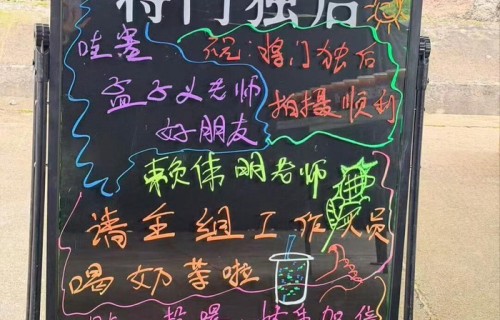 将门独后
哇塞
孟子义老师
好朋友
祝:将门独后
拍摄顺利
赖伟明老师
请全组工作人员
喝奶茶啦